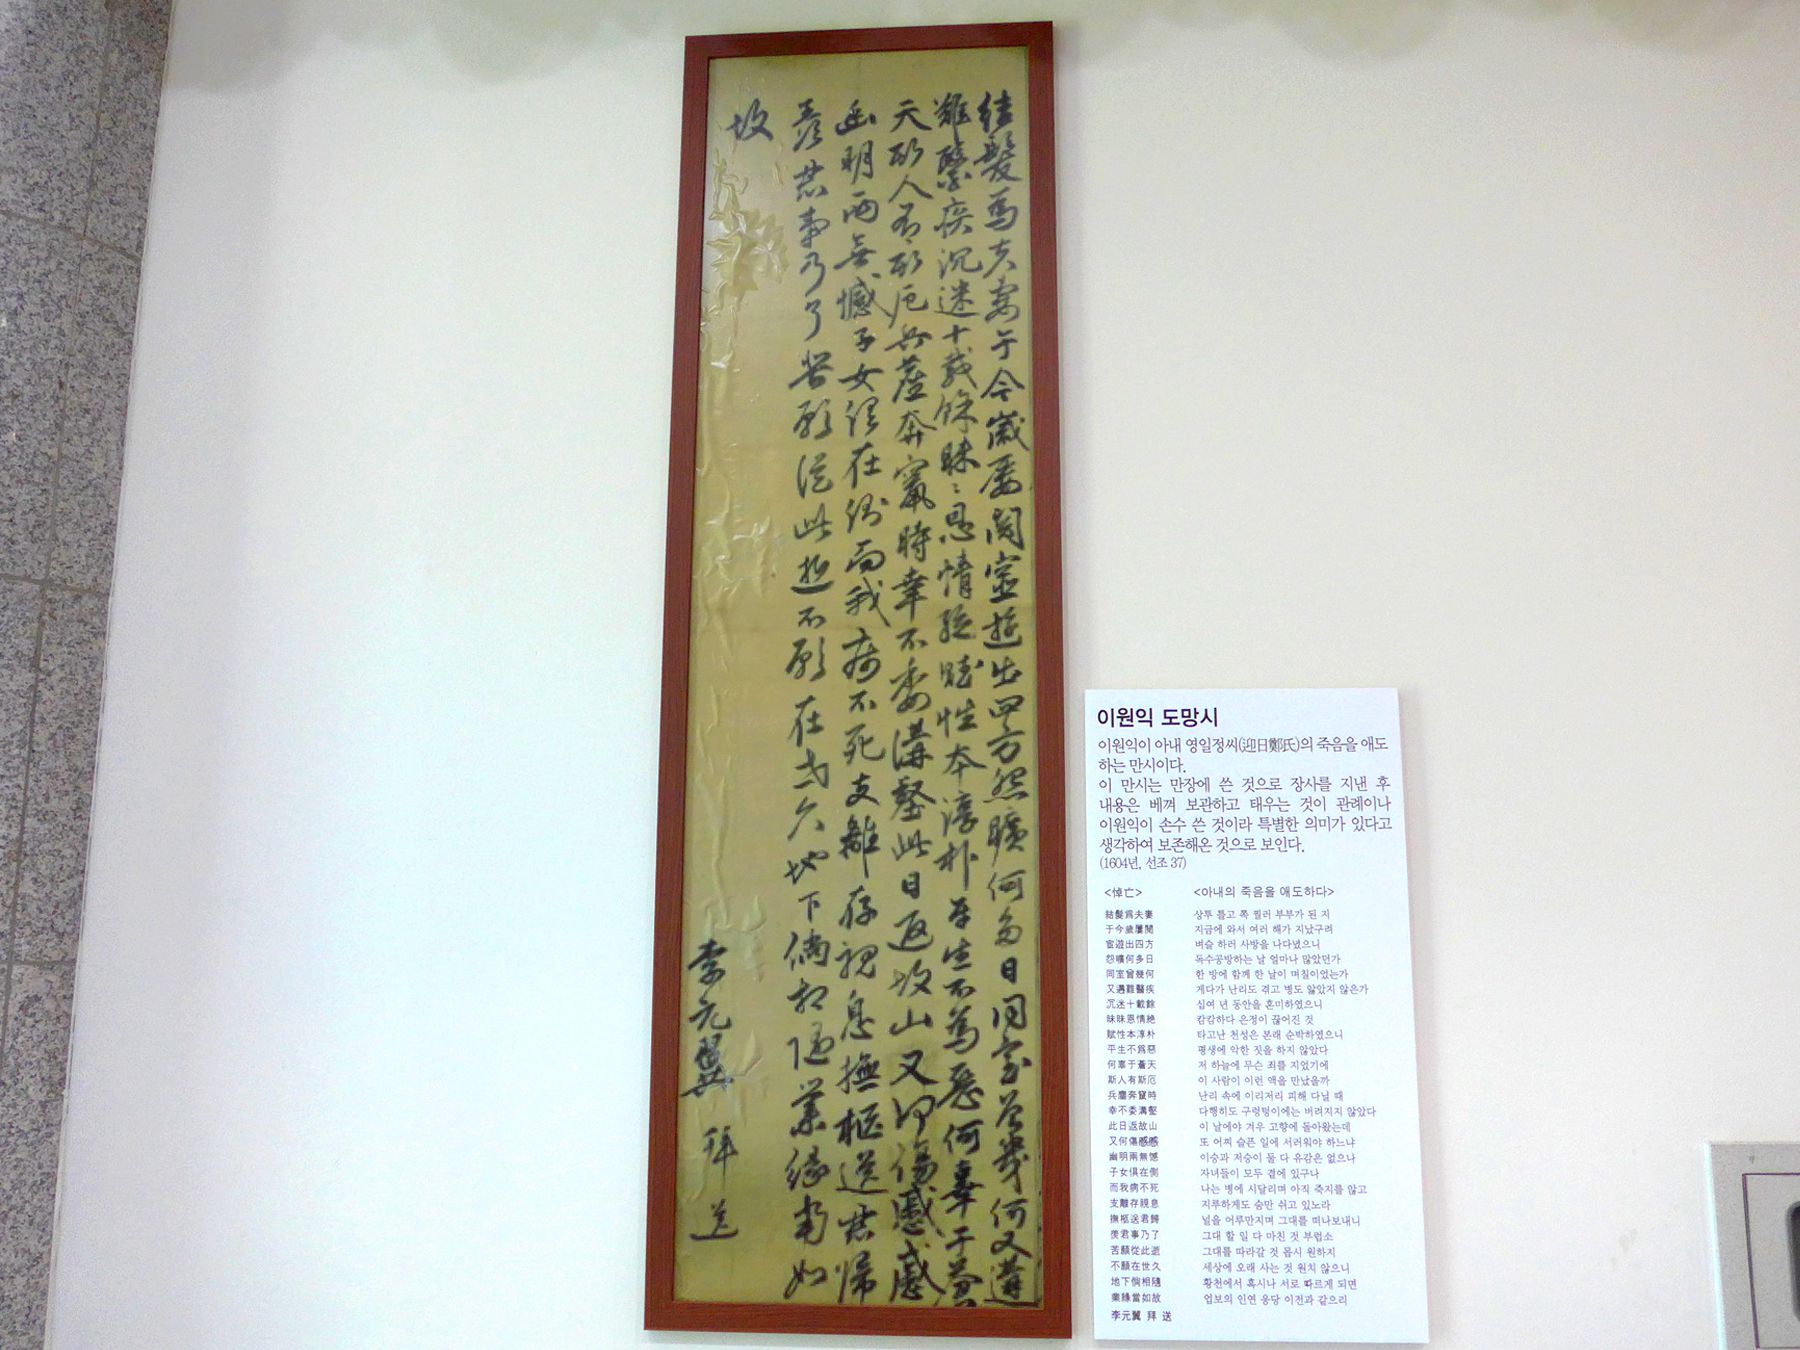 結髮爲夫妻于今歲屢閱宦遊出四方怨曠何多日同室曾幾何又遘
難醫疾沉迷十載餘昧〻恩情絶賦性本淳朴平生不爲惡何辜于蒼
天斯人有斯厄兵塵奔竄時幸不委溝壑此日返故山又何傷慼慼
幽明兩無憾子女俱在側而我病不死支離存視息撫柩送君歸
羨君事乃了苦願從此逝不願在世久地下倘相隨業緣當如
故
李元翼 拜 送
이원익 도망시
이원익이 아내 영일정씨(迎日鄭氏)의 죽음을 애도
하는 만시이다.
이 만시는 만장에 쓴 것으로 장사를 지낸 후
내용은 베껴 보관하고 태우는 것이 관례이나
이원익이 손수 쓴 것이라 특별한 의미가 있다고
생각하여 보존해온 것으로 보인다.
(1604년, 선조 37)
<悼亡> <아내의 죽음을 애도하다>
結髮爲夫妻 상투 틀고 쪽 찔러 부부가 된 지
于今歲屢閱 지금에 와서 여러 해가 지났구려
宦遊出四方 벼슬 하러 사방을 나다녔으니
怨曠何多日 독수공방하는 날 얼마나 많았던가
同室曾幾何 한 방에 함께 한 날이 며칠이었는가
又遘難醫疾 게다가 난리도 겪고 병도 앓았지 않은가
沉迷十載餘 십여 년 동안을 혼미하였으니
昧昧恩情絶 캄캄하다 은정이 끊어진 것
賦性本淳朴 타고난 천성은 본래 순박하였으니
平生不爲惡 평생에 악한 짓을 하지 않았다
何辜于蒼天 저 하늘에 무슨 죄를 지었기에
斯人有斯厄 이 사람이 이런 액을 만났을까
兵塵奔竄時 난리 속에 이리저리 피해 다닐 때
幸不委溝壑 다행히도 구렁텅이에는 버려지지 않았다
此日返故山 이 날에야 겨우 고향에 돌아왔는데
又何傷慼慼 또 어찌 슬픈 일에 서러워야 하느냐
幽明兩無憾 이승과 저승이 둘 다 유감은 없으나
子女俱在側 자녀들이 모두 곁에 있구나
而我病不死 나는 병에 시달리며 아직 죽지를 않고
支離存視息 지루하게도 숨만 쉬고 있노라
撫柩送君歸 널을 어루만지며 그대를 떠나보내니
羨君事乃了 그대 할 일 다 마친 것 부럽소
苦願從此逝 그대를 따라갈 것 몹시 원하지
不願在世久 세상에 오래 사는 것 원치 않으니
地下倘相隨 황천에서 혹시나 서로 따르게 되면
業緣當如故 업보의 인연 응당 이전과 같으리
李元翼 拜 送